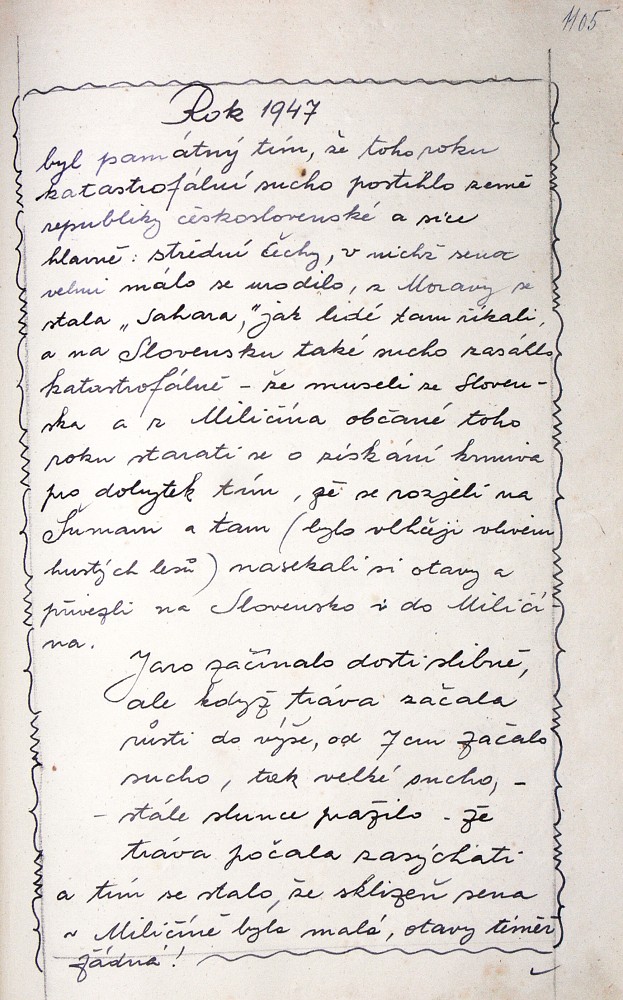 1105
Rok 1947
byl památný tím, že toho roku
katastrofální sucho postihlo země
republiky československé a sice
hlavně: střední Čechy, v nichž sena
velmi málo se urodilo, z Moravy se
stala „Sahara," jak lidé tam říkali,
a na Slovensku také sucho zasáhlo
katastrofálně - že museli ze Sloven-
ska a z Miličína občané toho
roku starati se o získání krmiva
pro dobytek tím, že se rozjeli na
Šumavu a tam (bylo vlhčeji vlivem
hustých lesů) nasekali si otavy a
přivezli na Slovensko i do Miličí-
na.
Jaro začínalo dosti slibně,
ale když tráva začala
růsti do výše, od 7 cm začalo
sucho, tak velké sucho, -
- stále slunce pražilo - že
tráva počala zasýchati
a tím se stalo, že sklizeň sena
v Miličíně byla malá, otavy téměř
žádná!